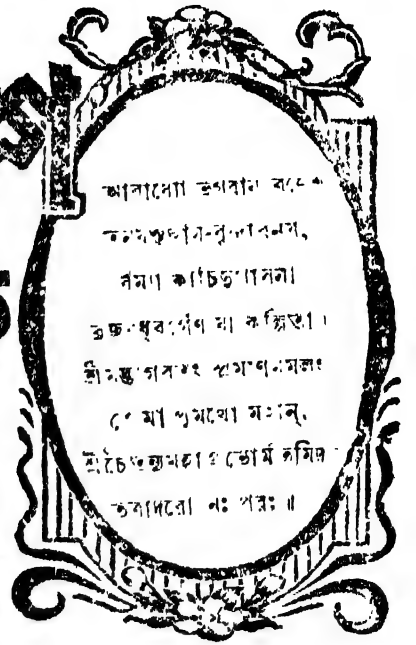 আরাধ্যো ভগবান ব্রজেশ
তনয়স্তদ্ধাম-বৃন্দাবনম্,
রম্যা কাচিদুপাসনা
ব্রজবধূবর্গেণ যা কল্পিতা।
শ্রীমদ্ভাগবতং প্রমাণমমলং
প্রেমা পুমর্থো মহান্,
শ্রীচৈতন্যমহাপ্রভোর্মতমিদং
তত্রাদরো নঃ পরঃ॥